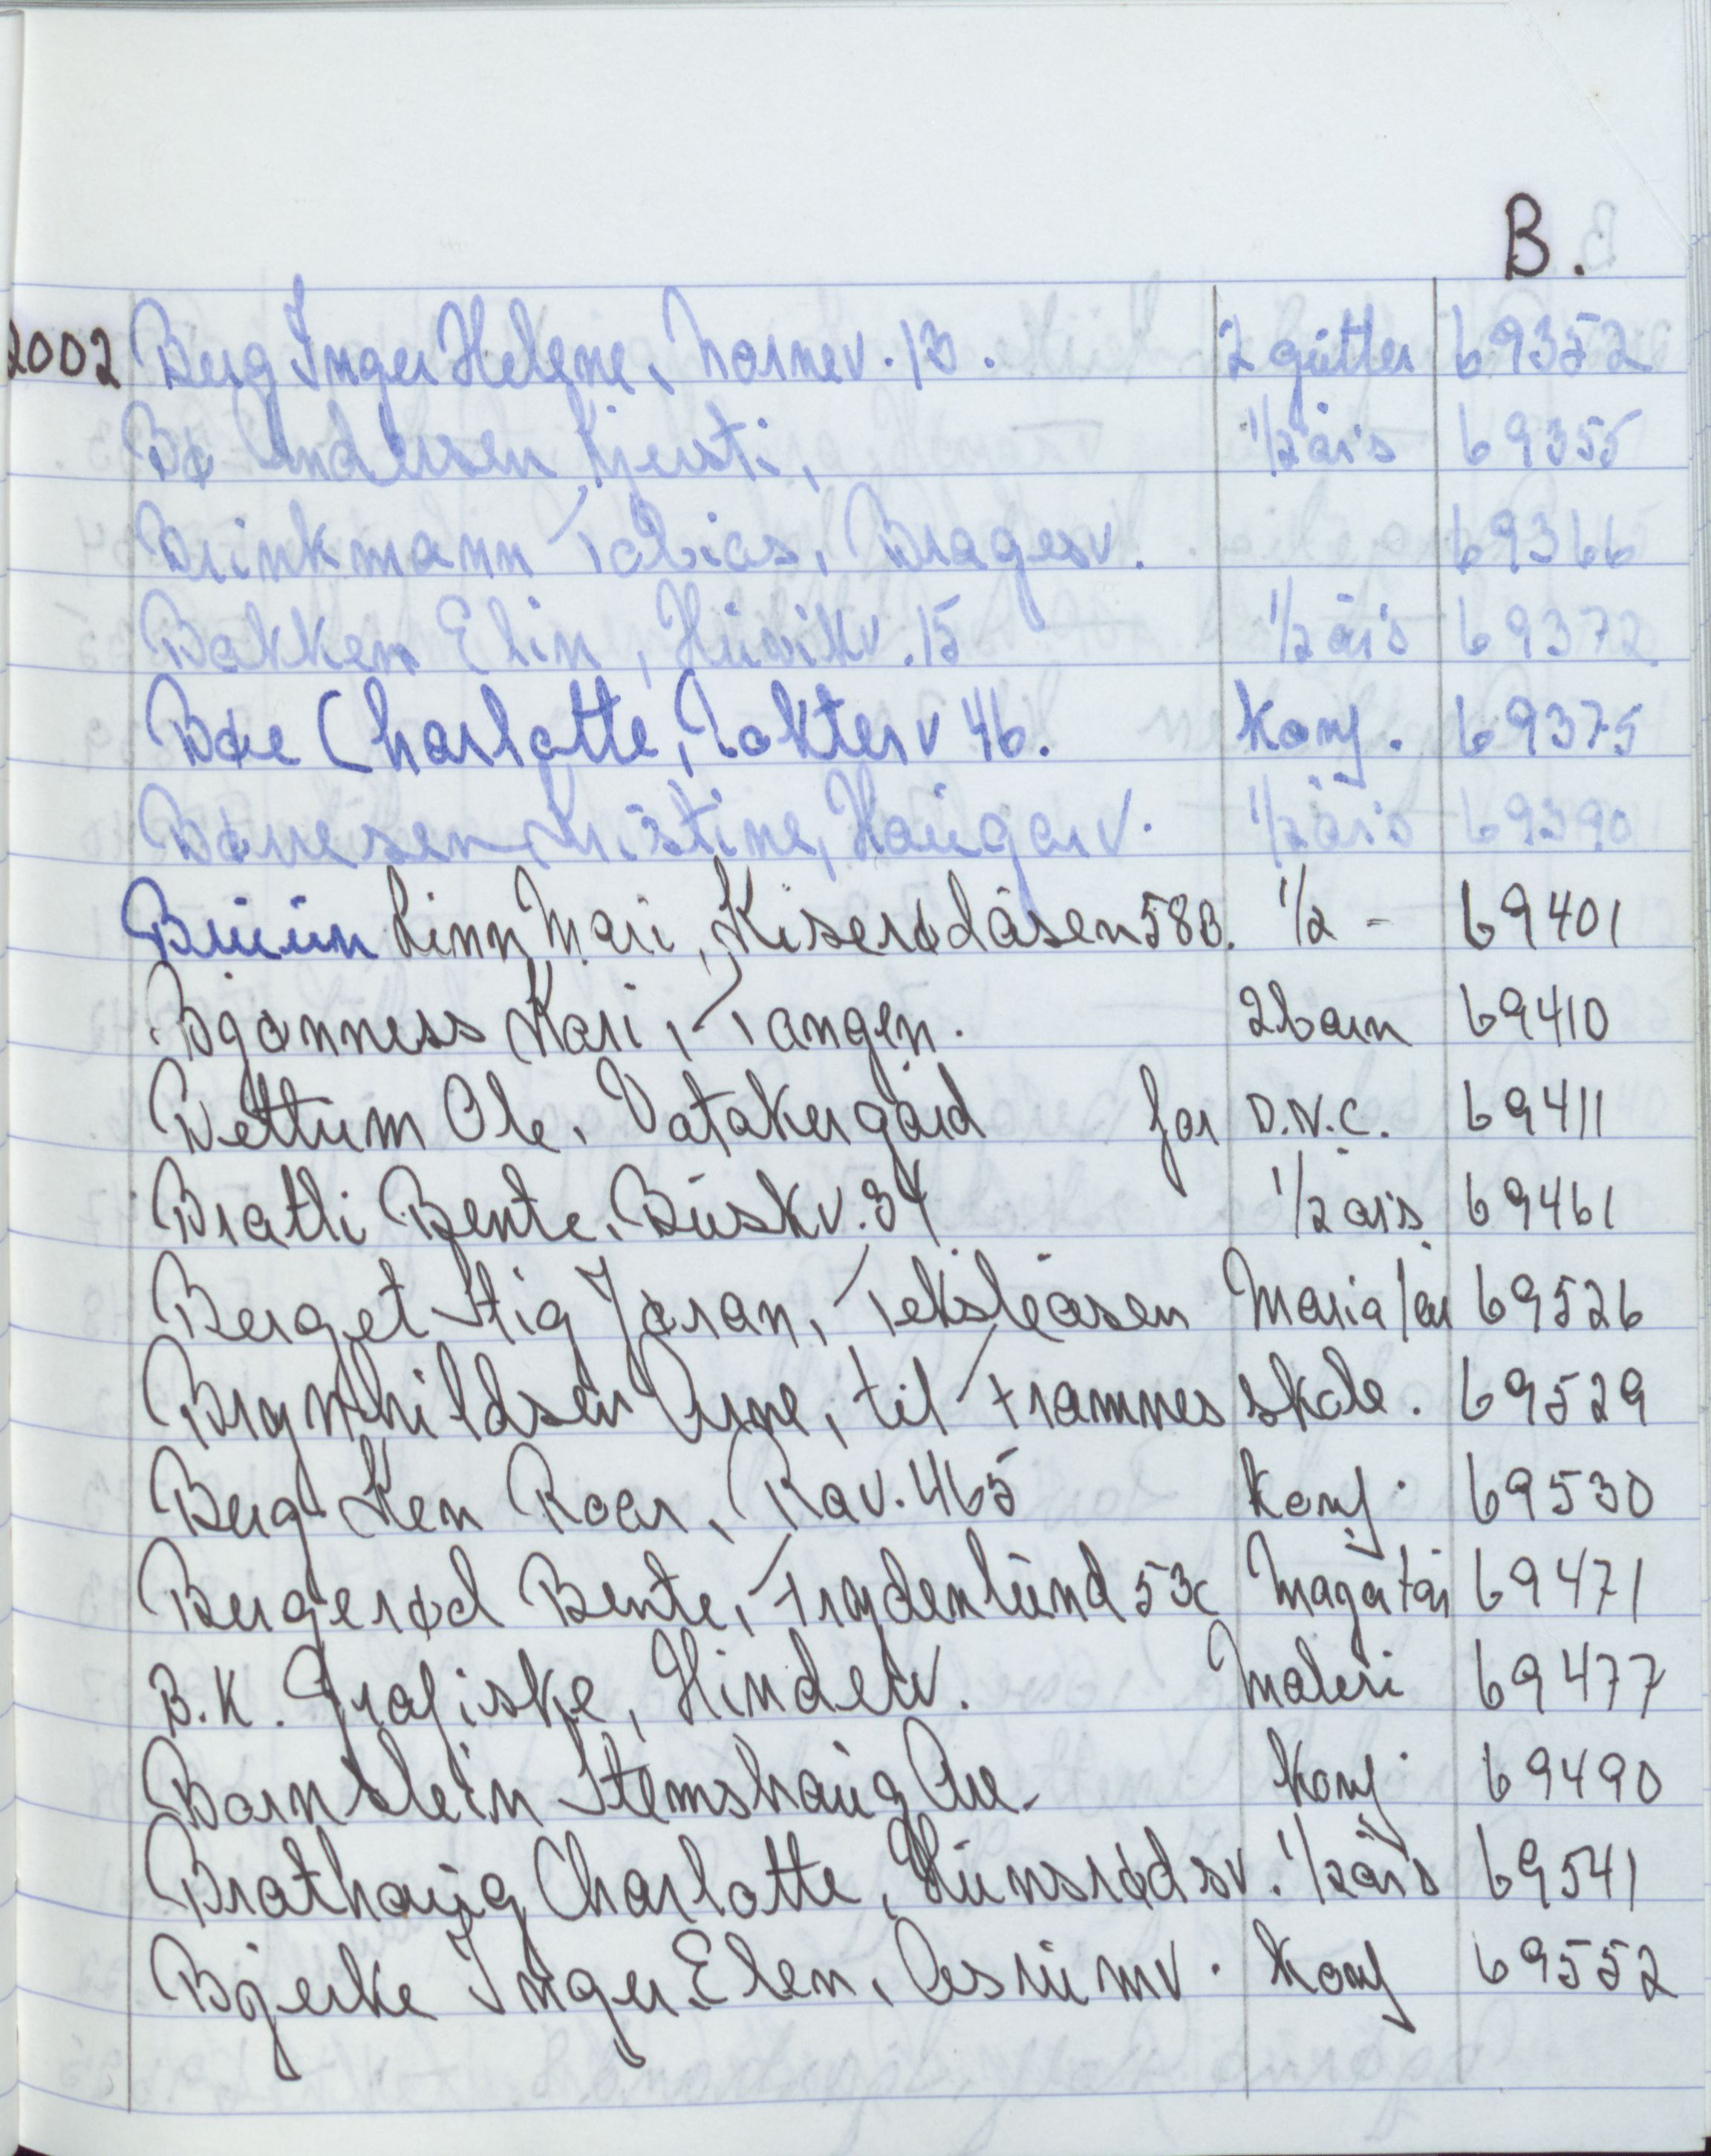 B.
2002 Berg Inger Helene, Nornev. 13. 2 gutter 69352
Bø Andersen Kjersti, 1/2 års 69355
Brinkmann Tobias, Bragesv. 69366
Bakken Elin, Husvikv. 15 1/2 års 69372
Bøe Charlotte, Nokterv 46. Konf. 69375
Børresen Kristine, Haugarv. 1/2 års 69390
Bruun Linn Mari, Kiserødåsen 58B. 1/2 - 69401
Bjønness Kari, Tangen. 2 barn 69410
Bettum Ole, Vatakergård for D.N.C. 69411
Bratli Bente, Buskv. 34 1/2 års 69461
Berget Stig Jøran, Teksleåsen Maria 1 år 69526
Brynhildsen Arne, til Framnes skole. 69529
Berg Ken Roar, Rav. 465 Konf. 69530
Bergerød Bente, Frydenlund 53c 69471
B.K. Grafiske, Hinderv. Maleri 69477
Barnslein Stemshaug Are. Konf. 69490
Brathaug Charlotte, Hunsrødsv. 1/2 års 69541
Bjerke Inger Elen, Åsrumv. Konf 69552